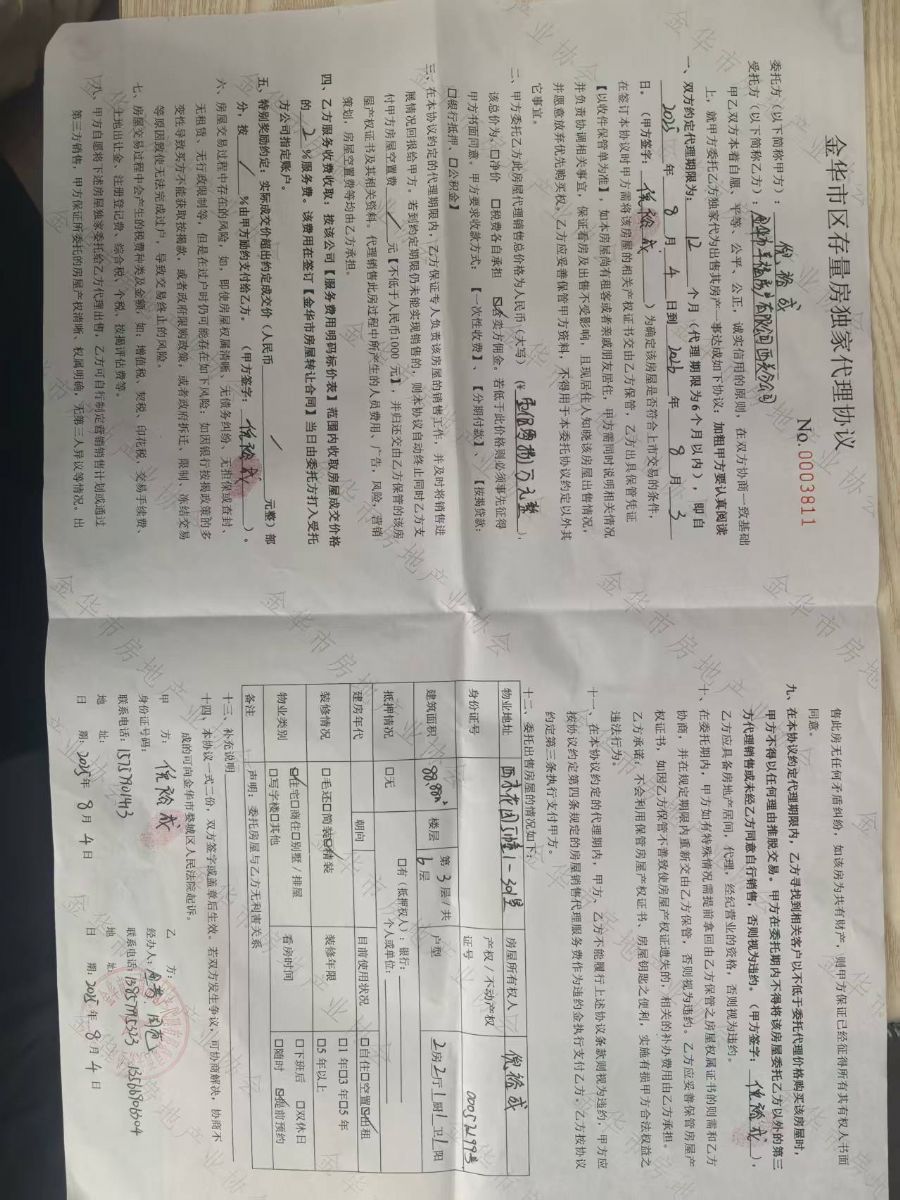 金华市区存量房独家代理协议
No. 0003811
委托方（以下简称甲方）：倪裕成
受托方（以下简称乙方）：
甲乙双方本着自愿、平等、公平、公正，诚实信用的原则，在双方协商一致基础
上，就甲方委托乙方独家代为出售其房产一事达成如下协议：加粗甲方要认真阅读
一、双方约定代理期限为：12个月（代理期限为6个月以内），即自
2025年8月4日到2026年8月3
日。（甲方签字：倪裕成）为确定该房屋是否符合上市交易的条件，
在签订本协议时甲方需将该房屋的相关产权证书交由乙方保管，乙方出具保管凭证
【以收件保管单为准】，如本房屋尚有租客或者亲戚朋友居住，甲方需同时说明相关情况
并负责协调相关事宜，保证看房及出售不受影响，且现居住人知晓该房屋出售情况，
并愿意放弃优先购买权。乙方应妥善保管甲方资料，不得用于本委托协议约定以外其
它事宜。
二、甲方委托乙方此房屋代理销售总价格为人民币（大写）（¥
该总价为：□净价 □税费各自承担 ☑含卖方佣金。若低于此价格则必须事先征得
甲方书面同意。甲方要求收款方式：【一次性收费】、【分期付款】、【按揭贷款：
□银行抵押、□公积金】
三、在本协议约定的代理期限内，乙方保证专人负责该房屋的销售工作，并及时将销售进
展情况回报给甲方。若到约定期限仍未能实现销售的，则本协议自动终止同时乙方支
付甲方房屋空置费 / 元【不低于人民币1000元】，并归还交由乙方保管的该房
屋产权证书及其相关资料。代理销售此房过程中所产生的人员费用、广告、风险、营销
策划、房屋空置费等均由乙方承担。
四、乙方服务收费收取：按该公司【服务费用明码标价表】范围内收取房屋成交价格
的2%服务费。该费用在签订【金华市房屋转让合同】当日由委托方打入受托
方公司指定账户。
五、特别奖励约定：实际成交价超出约定成交价（人民币 / 元整）部
分，按 / %由甲方额外支付给乙方。（甲方签字：倪裕成）。
六、房屋交易过程中存在的风险，如，即使房屋权属清晰、无债务纠纷、无担保或查封、
无租赁、无行政限制等，但是在过户时仍可能存在如下风险：如因银行按揭政策的多
变性导致买方不能获取按揭款，或者政府限购政策，或者政府拆迁、限制、冻结交易
等原因致使无法完成过户，导致交易终止的风险。
七、房屋交易过程中会产生的税费种类及金额，如：增值税、契税、印花税、交易手续费、
土地出让金、注册登记费、综合税、个税、按揭评估费等。
八、甲方自愿将下述房屋独家委托给乙方代理出售，乙方可自行制定营销销售计划或通过
第三方销售，甲方保证所委托的房屋产权清晰、权属明确，无第三人异议等情况。出
售此房无任何矛盾纠纷，如该房为共有财产，则甲方保证已经征得所有共有权人书面
同意。
九、在本协议约定代理期限内，乙方寻找到相关客户以不低于委托代理价格购买该房屋时，
甲方不得以任何理由推脱交易。甲方在委托期内不得将该房屋委托乙方以外的第三
方代理销售或未经乙方同意自行销售，否则视为违约。（甲方签字：倪裕成），
乙方应具备房地产居间，代理，经纪营业的资格，否则视为违约。
十、在委托期内，甲方如有特殊情况需提前拿回由乙方保管之房屋权属证书的则需和乙方
协商，并在规定期限内重新交由乙方保管，否则视为违约。乙方应妥善保管房屋产
权证书，如因乙方保管不善致使房屋产权证遗失的，相关的补办费用由乙方承担。
乙方承诺，不会利用保管房屋产权证书、房屋钥匙之便利，实施有损甲方合法权益之
违法行为。
十一、在本协议约定的代理期内，甲方、乙方不能履行上述协议条款则视为违约，甲方应
按协议约定第四条规定的房屋销售代理服务费作为违约金执行支付乙方。乙方按协议
约定第三条执行支付甲方。
十二、委托出售房屋的情况如下：
物业地址 西苑花园5幢1-201号 房屋所有权人 倪裕成
身份证号 产权/不动产权证号 00052199号
建筑面积 88.88㎡ 楼层 第3层/共6层 户型 2房2厅1厨1卫1阳
抵押情况 □无 □有（抵押权人）：银行： 个人或单位：
建房年代 朝向 目前使用状况 □自住□空置☑出租
装修情况 □毛还□简装☑精装 装修年限 □1年□3年□5年 □5年以上
物业类别 ☑住宅□商住□别墅/排屋 □写字楼□其他 看房时间 □下班后 □双休日 □随时 ☑提前预约
备注 声明：委托房屋与乙方无利害关系
十三、补充说明
十四、本协议一式二份，双方签字或盖章后生效。若双方发生争议，可协商解决，协商不
成的可向金华市婺城区人民法院起诉。
甲 方：倪裕成 乙 方：
身份证号码： 经办人：
联系电话：15757901493 联系电话：
地 址： 地 址：
日 期：2025年8月4日 日 期：2025年8月4日